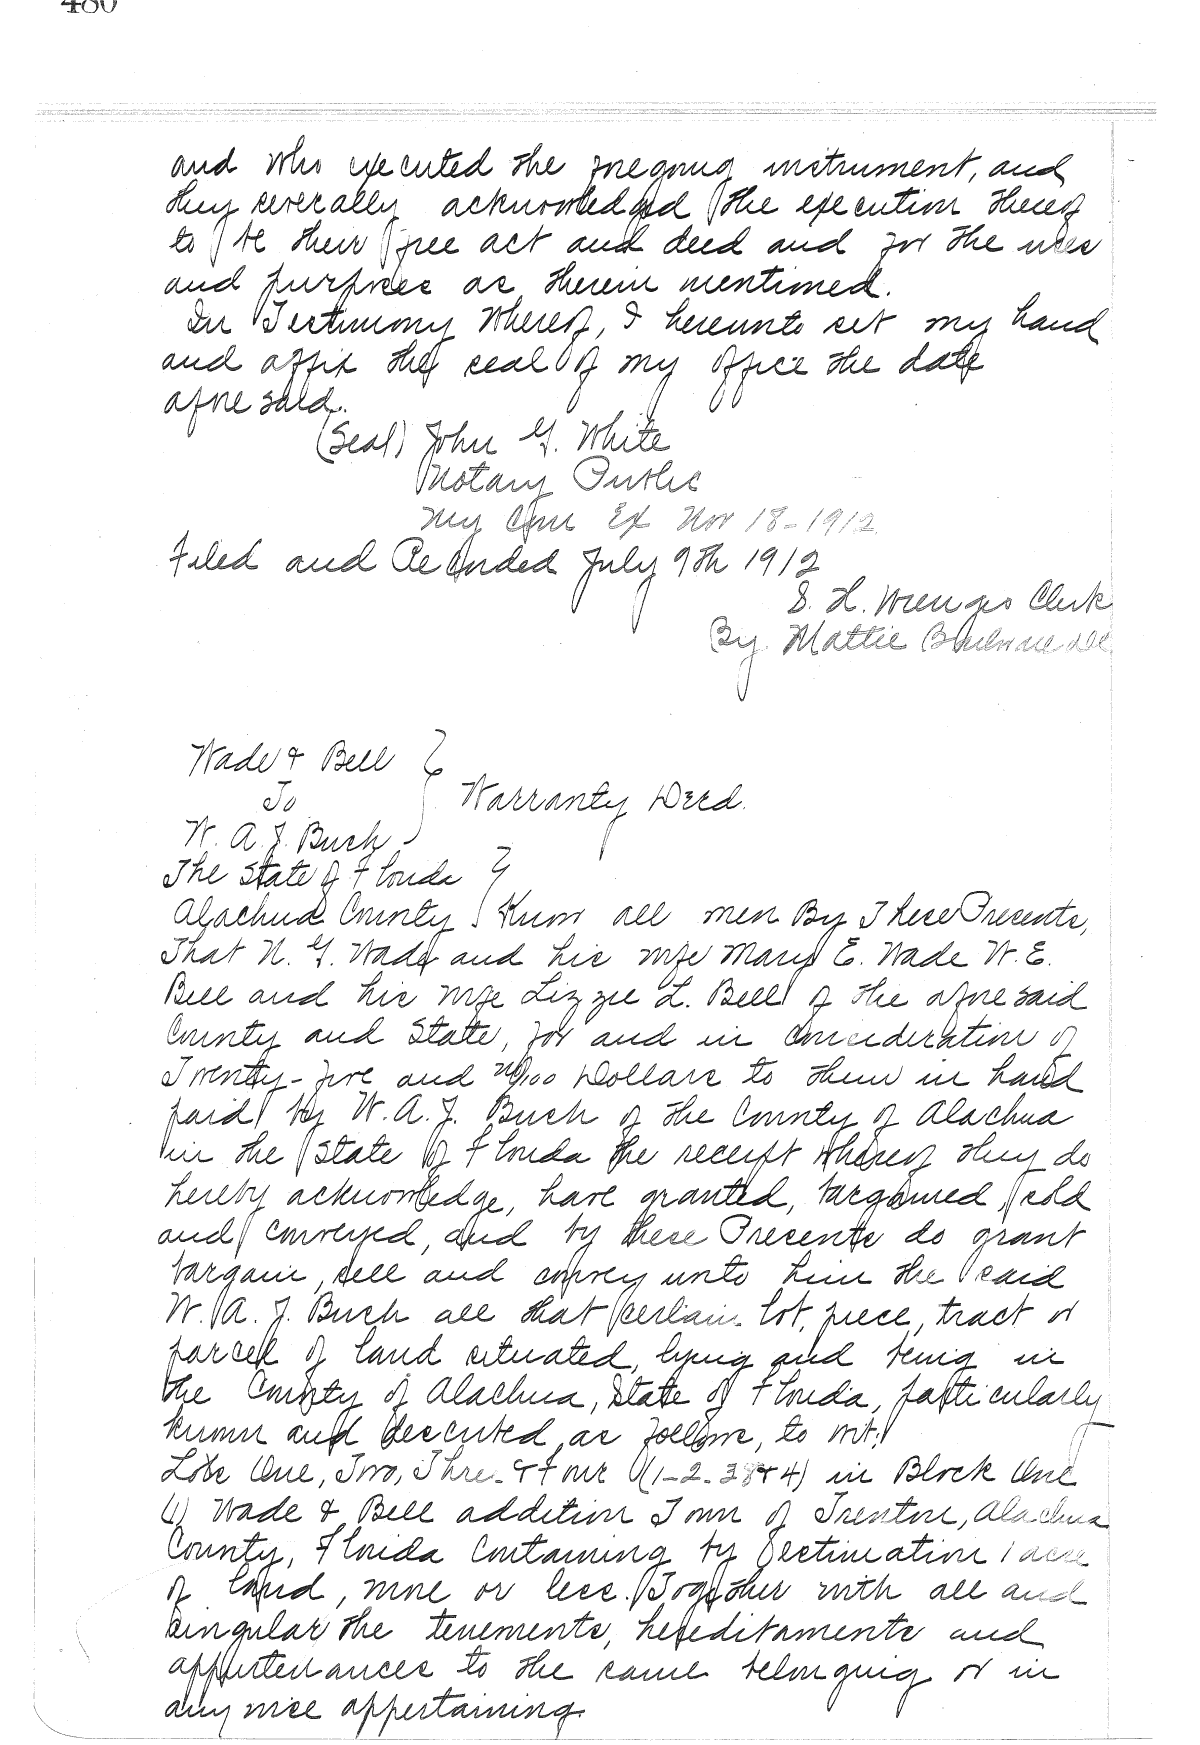 480
and who executed the foregoing instrument, and
they severally acknowledged the execution thereof
to be their free act and deed and for the uses
and purposes as therein mentioned.
In Testimony Whereof, I hereunto set my hand
and affix the seal of my office the date
aforesaid.
(Seal) John G. White
Notary Public
My Com Ex Nov 18-1912
Filed and Recorded July 9th 1912
S. H. Wienges Clerk
By. Mattie DC
Wade & Bell
To
Warranty Deed.
W. A. J. Buch
The State of Florida
Alachua County Know all men By These Presents,
That N. G. Wade and his wife Mary E. Wade W. E.
Bell and his wife Lizzie L. Bell of the aforesaid
County and State, for and in consideration of
Twenty-five and no/100 Dollars to them in hand
paid by W. A. J. Buch of the County of Alachua
in the State of Florida the receipt whereof they do
hereby acknowledge, have granted, bargained, sold
and conveyed, and by these Presents do grant
bargain, sell and convey unto him the said
W. A. J. Buch all that certain lot, piece, tract or
parcel of land situated, lying and being in
the County of Alachua, State of Florida, particularly
known and described as follows, to wit:
Lots One, Two, Three & Four (1-2-3 & 4) in Block One
(1) Wade & Bell addition Town of Trenton, Alachua
County, Florida Containing by estimation 1 acre
of land, more or less. Together with all and
singular the tenements, hereditaments and
appurtenances to the same belonging or in
any wise appertaining.